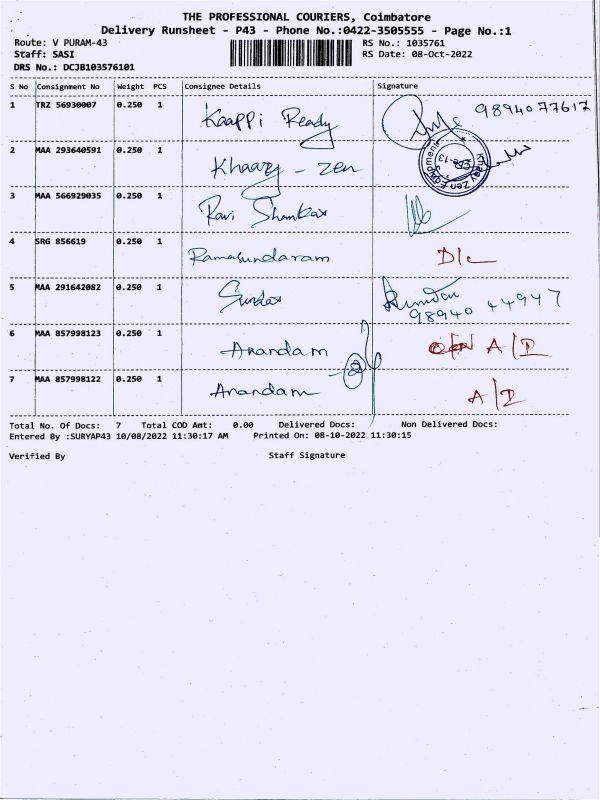 THE PROFESSIONAL COURIERS, Coimbatore
Delivery Runsheet - P43 - Phone No.:0422-3505555 - Page No.:1
Route: V PURAM-43 RS No.: 1035761
Staff: SASI RS Date: 08-Oct-2022
DRS No.: DCJB103576101
S No Consignment No Weight PCS Consignee Details Signature
1 TRZ 56930007 0.250 1 Kaappi Ready 9894077617
2 MAA 293640591 0.250 1 Khaazy - Zen
3 MAA 566929035 0.250 1 Ravi Shankar
4 SRG 856619 0.250 1 Ramasundaram D/c
5 MAA 291642082 0.250 1 Sundar
98940 44947
6 MAA 857998123 0.250 1 Anandam A/D
7 MAA 857998122 0.250 1 Anandam A/D
Total No. Of Docs: 7 Total COD Amt: 0.00 Delivered Docs: Non Delivered Docs:
Entered By :SURYAP43 10/08/2022 11:30:17 AM Printed On: 08-10-2022 11:30:15
Verified By Staff Signature